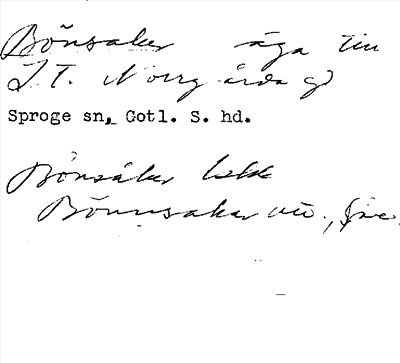 Bönsaker äga till
I T. Norrgårda gd
Sproge sn, Gotl. S. hd.
Bönsåker
Bönnsaker